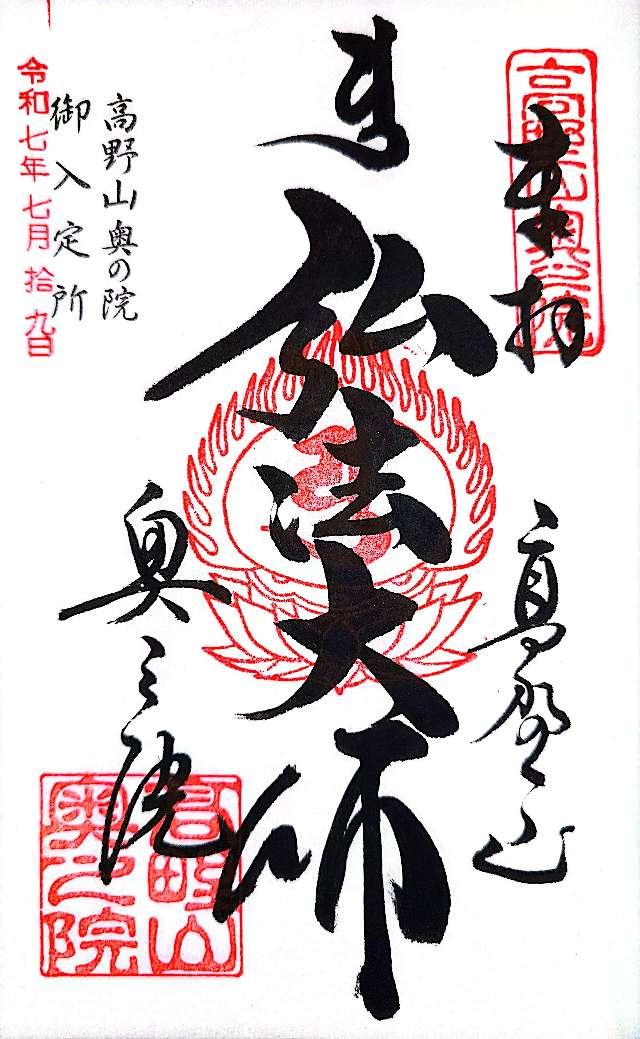 高野山奥之院
奉拝
高野山
弘法大師
奥之院
高野山
奥之院
高野山奥の院
御入定所
令和七年七月拾九日